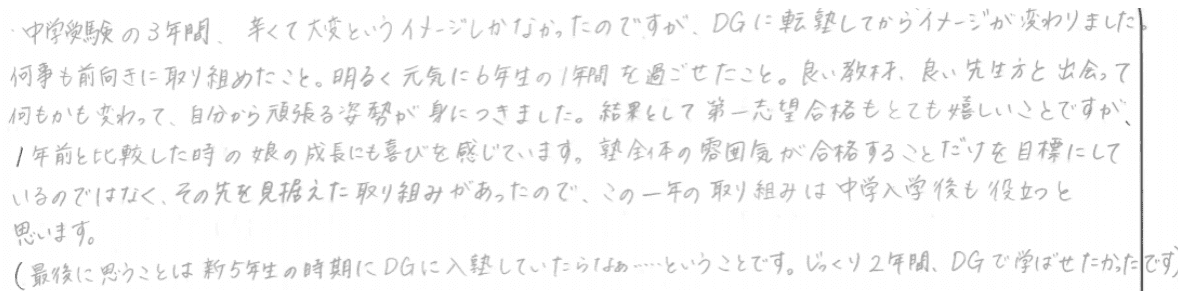 ・中学受験の3年間、辛くて大変というイメージしかなかったのですが、DGに転塾してからイメージが変わりました。
何事も前向きに取り組めたこと。明るく元気に6年生の1年間を過ごせたこと。良い教材、良い先生方と出会って
何もかも変わって、自分から頑張る姿勢が身につきました。結果として第一志望合格もとても嬉しいことですが、
1年前と比較した時の娘の成長にも喜びを感じています。塾全体の雰囲気が合格することだけを目標にして
いるのではなく、その先を見据えた取り組みがあったので、この一年の取り組みは中学入学後も役立つと
思います。
(最後に思うことは新5年生の時期にDGに入塾していたらなぁ……ということです。じっくり2年間、DGで学ばせたかったです)